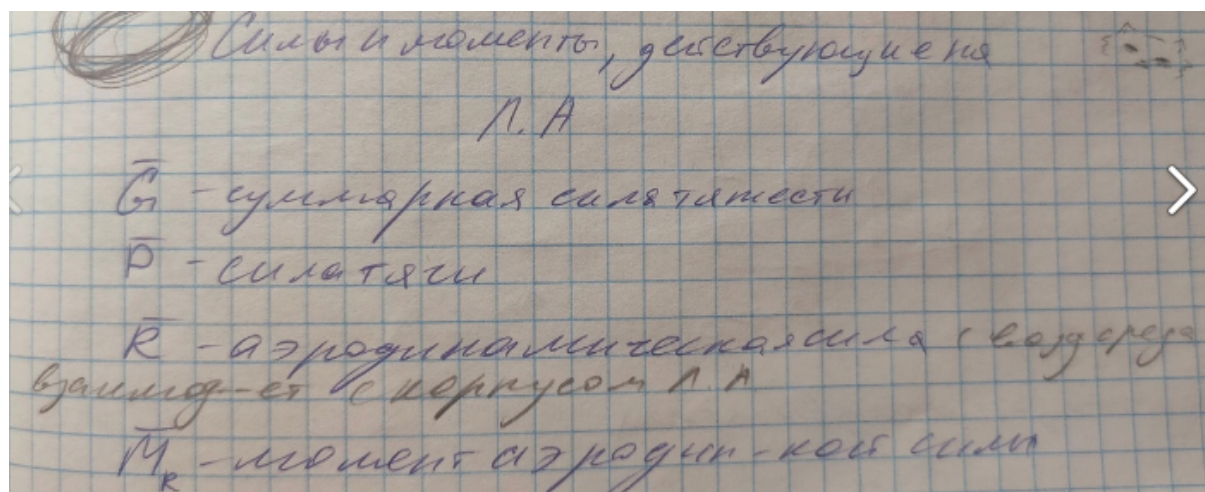 Силы и моменты, действующие на
Л.А
G̅ - суммарная сила тяжести
P̅ - сила тяги
R̅ - аэродинамическая сила (возд среда
взаимод-ет с корпусом Л.А
M̅_R - момент аэродин-кой силы